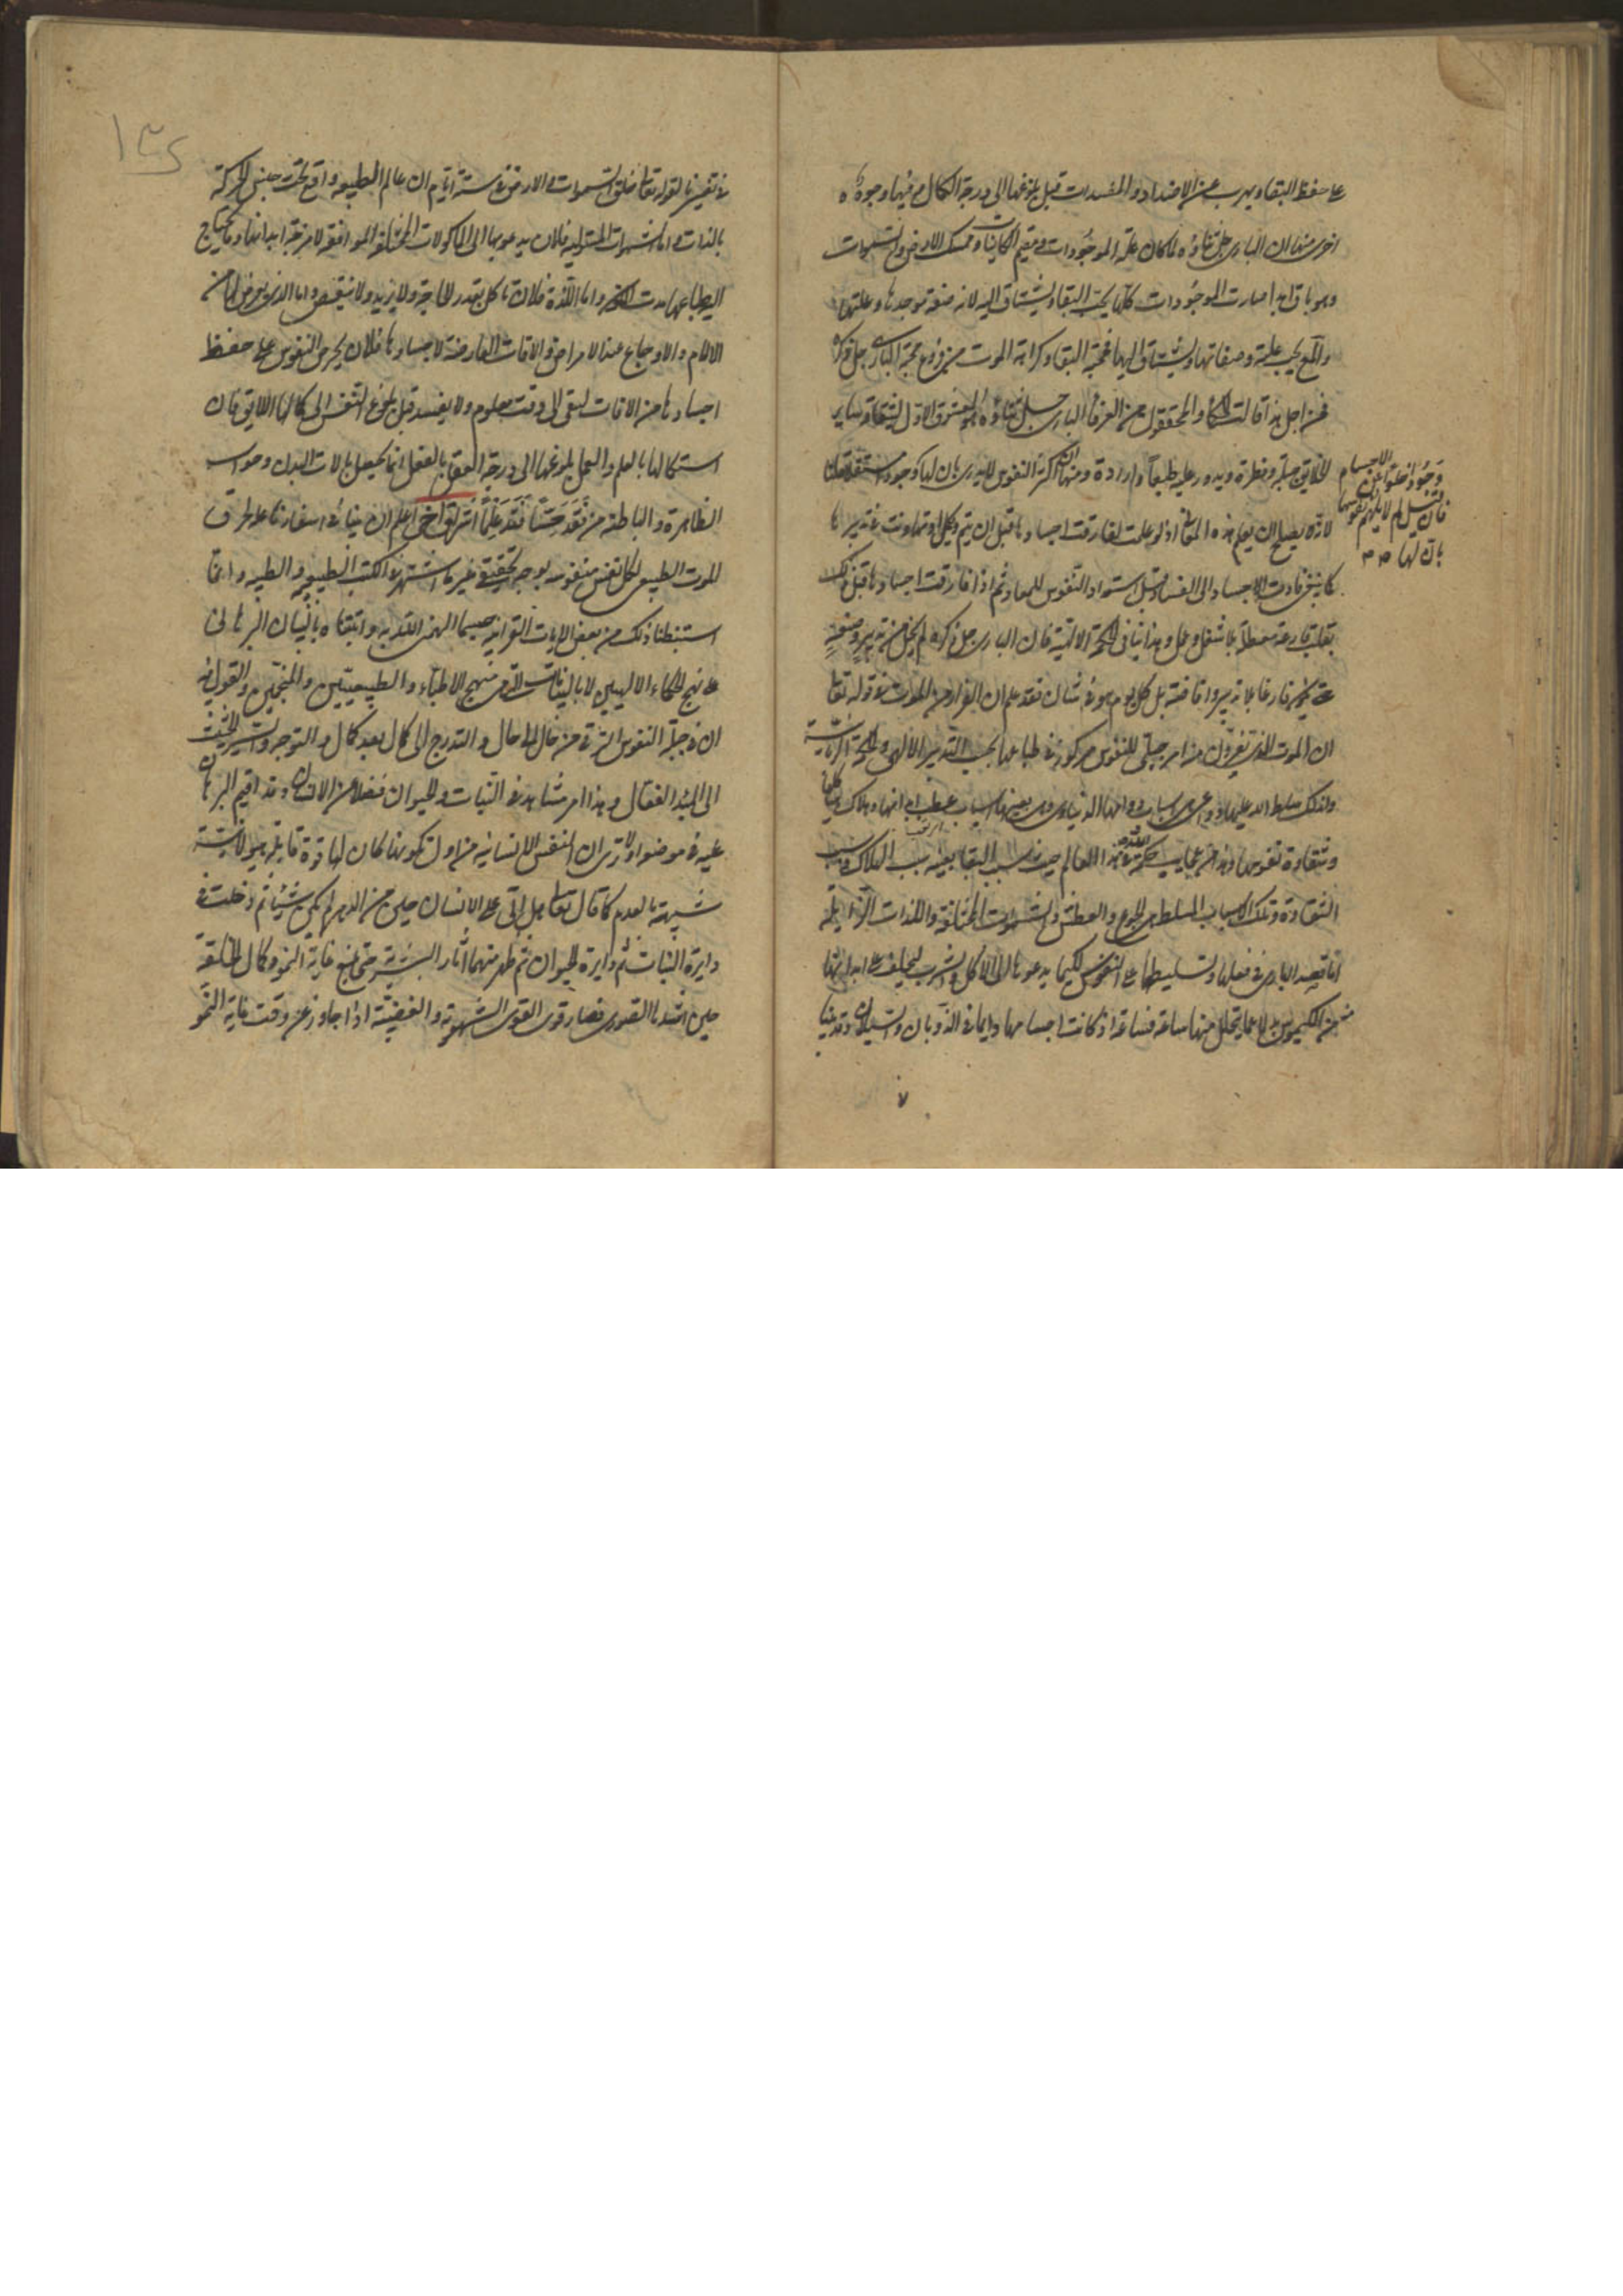 على حفظ البقاء ويهرب عن الاضداد والمفسدات قبل بلوغها الى درجة الكمال من فيها وجوه
اخرى منها ان البارى جل ثناؤه لما كان علة الموجودات ومقيم الكاينات وممسك الارض والسموات
وهو باق ابدا صارت الموجودات كلها يحب البقاء ويشتاق اليه لانه صفة موجدها وعلتها
والمع يحب علته وصفاتها ويشتاق اليها فمحبة البقاء وكراهة الموت من فروع محبة البارى جل ذكره
فمن اجل هذا قالت الحكماء والمحققون من العرفاء البارى جل ثناؤه هو المعشوق الاول يشتاقه ساير
الخلايق جبلة وفطرة ويدور عليه طبعا وارادة ومنها ان اكثر النفوس لا يدرى بان لها وجودا مستقلا
وجود اخلوا عن الاجسام
فان قيل لم لا يلهم نفوسها
بان لها
لانه لا يصلح ان يعلم هذه المعانى اذ لو علمت لفارقت اجسادها قبل ان يتم ويكمل او تهاونت فى تدبيرها
كما ينبغى فادت الاجساد الى الفساد قبل استعداد النفوس للمعاد ثم اذا فارقت اجسادها قبل ذلك
بقيت فارغة معطلة بلا شغل وعمل وهذا ينافى الحكمة الالهية فان البارى جل ذكره لم يخل من تدبير وصنعة
حتى يكون فارغا بلا تدبير وافاضة بل كل يوم هو فى شان فقد علم ان الفرار من الموت فى قوله تعالى
ان الموت الذى تفرون منه امر جبلى للنفوس مركوز فى طباعها بحسب التدبير الالهى والحكمة الربانية
ولذلك سلط الله عليها دواعى واسباب دوامها الدنياوى وهى بعينها اسباب عطب ابدانها وهلاك هياكلها
وشقاوة نفوسها وهذا من عجايب حكمة الله فى هذا العالم حيث سبب البقاء بعينه سبب الهلاك وسبب
الشقاوة وتلك الاسباب المسلطة هى الجوع والعطش والشهوات المختلفة واللذات الزايلة
اما قصد البارى فى فعلها وتسليطها على النفوس لكيما يدعوها الى الاكل والشرب ليخلف على ابدانها
من الكيموس بدلا عما يتحلل منها ساعة فساعة اذ كانت اجسامها دايما فى الذوبان والسيلان وقد بينا
١٣٥
فى تفسيرنا لقوله تعالى خلق السموات والارض فى ستة ايام ان عالم الطبيعة واقع تحت جنس الحركة
بالذات واما الشهوات المتولية فلان يدعوها الى الماكولات المختلفة الموافقة لامزجة ابدانها وما يحتاج
اليه طباعها واما اللذة فلان تاكل بقدر الحاجة ولا يزيد ولا ينقص واما الذى يعرض لها من
الالام والاوجاع عند الامراض والافات العارضة لاجسادها فلان يحرص النفوس على حفظ
اجسادها من الافات لتبقى الى وقت معلوم ولا يفسد قبل بلوغ النفس الى كمالها اللايق فان
استكمالها بالعلم والعمل وبلوغها الى درجة العقل بالفعل انما يحصل بالات البدن وحواسه
الظاهرة والباطنة من فقد حسا فقد علما اشراق اخر اعلم ان بينا فى اسفارنا على طرق
الموت الطبيعى لكل نفس منفوسة بوجه تحقيقى غير ما اشتهر فى الكتب الطبيعية والطبية وانما
استنبطنا ذلك من بعض الايات القرانية حسبما الهمنى الله به واثبتناه بالبيان البرهانى
على نهج الحكماء الالهيين لا بالبيانات التى هى منهج الاطباء والطبيعيين والمنجمين والقول فيه
ان فى جبلة النفوس الترقى من حال الى حال والتدرج الى كمال بعد كمال والتوجه والسير الحثيث
الى المبدء الفعال وهذا امر مشاهد فى النبات والحيوان فضلا عن الانسان وقد اقيم البرهان
عليه فى موضعه اولا ترى ان النفس الانسانية من اول تكونها كان لها قوة قابلة هيولانية
شبيهة بالعدم كما قال تعالى هل اتى على الانسان حين من الدهر لم يكن شيئا ثم دخلت فى
دايرة النبات ثم دايرة الحيوان ثم ظهر منهما اثار البشرية حتى بلغ غاية النمو وكمال الخلقة
حين اشدها الصورى فصار قوى القوى الشهوية والغضبية اذا جاوز عن وقت غاية النمو